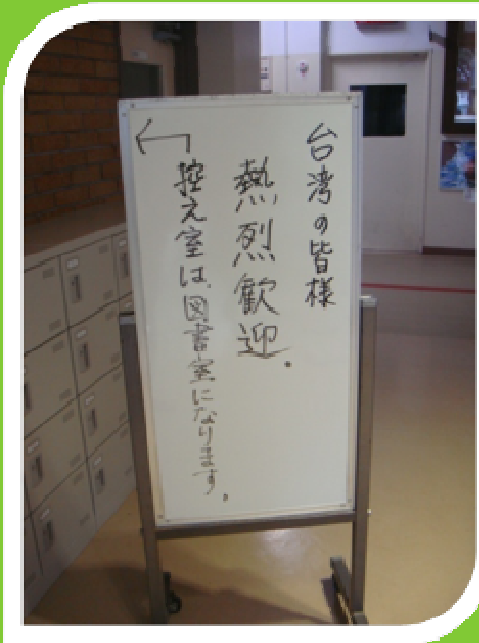 台湾の皆様
熱烈歓迎.
控え室は、図書室になります。